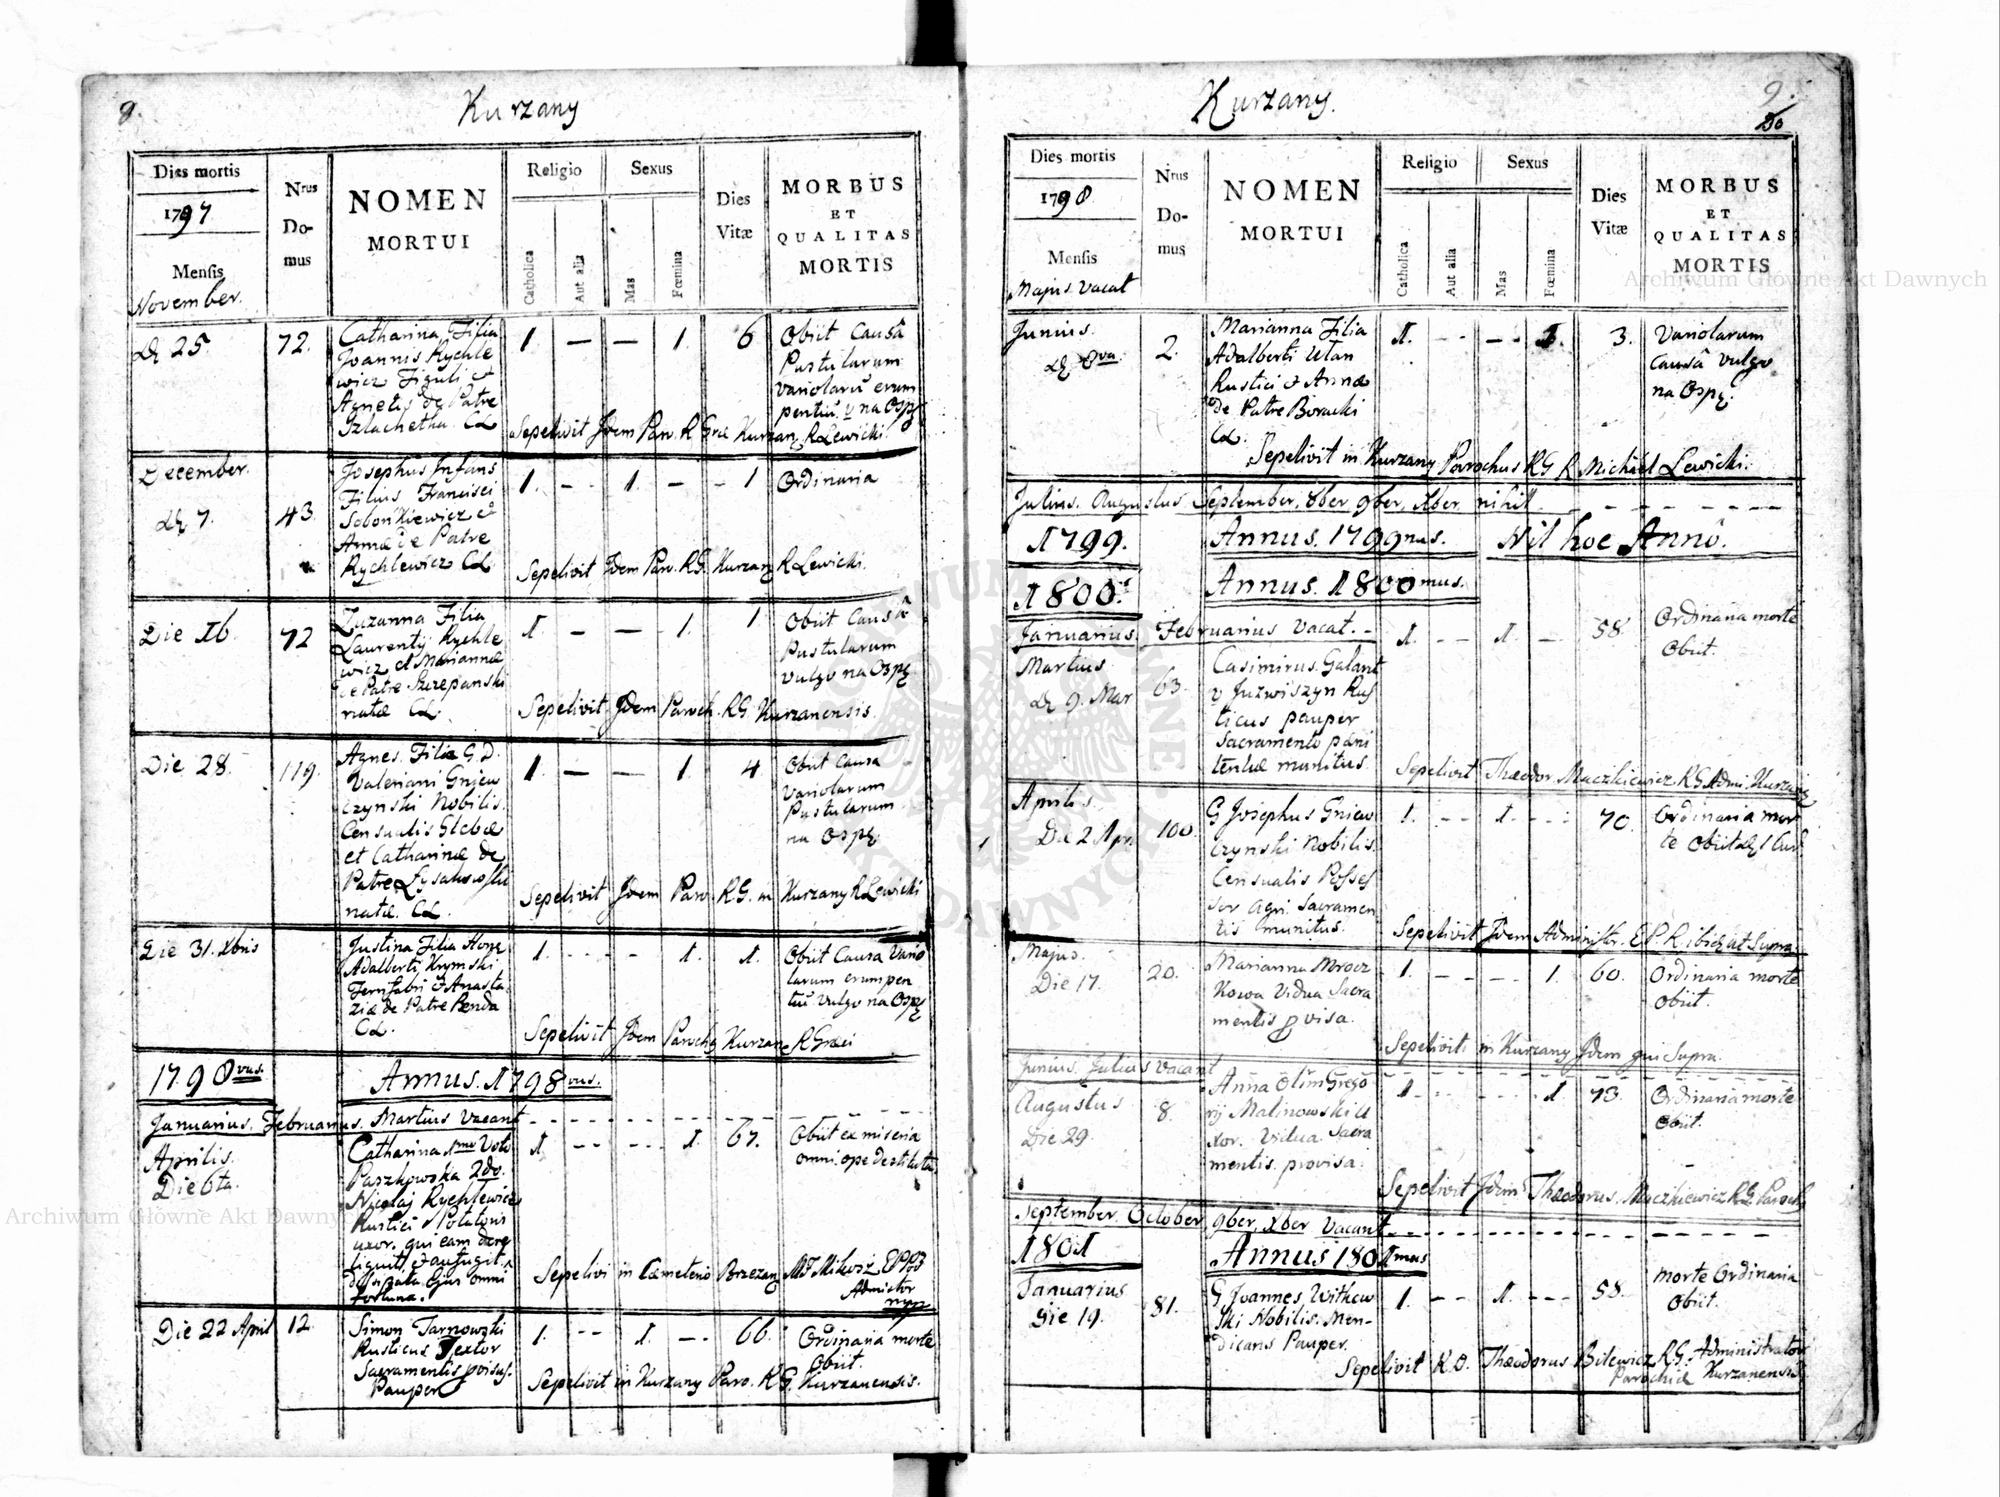 8.
Kurzany
Dies mortis
1797
Mensis
November.
Nrus
Do-
mus
NOMEN
MORTUI
Religio
Catholica
Aut alia
Sexus
Mas
Fœmina
Dies
Vitæ
MORBUS
ET
QUALITAS
MORTIS
25
72.
Catharina Filia
Joannis Rychle
wicz Figuli et
Agnetis de Patre
Szlachetka. CL
1. — — 1. 6
Obiit Causâ
Pustularum
variolarū erum
pentiū. v na Ospę
Sepelivit Idem Par. R Græ Kurzan R Lewicki.
December.
7.
43.
Josephus Infans
Filius Francisci
Sobonkiewicz et
Annæ de Patre
Rychlewicz CL
1. - - 1. - - 1
Ordinaria
Sepelivit Idem Par. RG. Kurzan R Lewicki.
Die 16
72
Zuzanna Filia
Laurentij Rychle
wicz et Mariannæ
de Patre Szczepanski
natæ CL.
1. — — 1. 1
Obiit Causâ
Pustularum
vulgo na Ospę
Sepelivit Idem Paroch. RG. Kurzanensis.
Die 28.
119.
Agnes Filia G. D.
Valeriani Gniew
czynski Nobilis.
Censualis Glebæ
et Catharinæ de
Patre Lysakowski
natæ. CL.
1. — — 1. 4.
Obiit Causa
variolarum
Pustularum
na Ospę
Sepelivit Idem Paro RG. in Kurzany R Lewicki
Die 31. Xbris
Justina Filia Hon
Adalberti Krymski
Ferrifabri et Anasta
ziæ de Patre Benda
CL.
1. - - - - 1. 1.
Obiit Causa Vario
larum erumpen
tiū vulgo na Ospę
Sepelivit Idem Parochq Kurzan R Græci
1798vus.
Annus. 1798vus.
Januarius. Februarius. Martius vacant
Aprilis.
Die 6ta.
Catharina 1mo Voto
Paszkowska 2do.
Nicolaj Rychlewicz
Rustici Potatoris
uxor. qui eam dere
liquit, et aufugit
dissipata ejus omni
fortuna.
1. - - - - 1. 67.
Obiit ex miseria
omni ope destituta
Sepelivi in Cœmeterio Brzezan
Die 22 April
12.
Simon Tarnowski
Rusticus Textor
Sacramentis pvisus.
Pauper
1. - - 1. - - 66.
Ordinaria morte
Obiit.
Sepelivit in Kurzany Paro. RG. Kurzanensis.
Kurzany.
9.
Dies mortis
1798
Mensis
Majus vacat
Nrus
Do-
mus
NOMEN
MORTUI
Religio
Catholica
Aut alia
Sexus
Mas
Fœmina
Dies
Vitæ
MORBUS
ET
QUALITAS
MORTIS
Junius.
2.
Marianna Filia
Adalberti Ulan
Rustici et Annæ
de Patre Boracki
CL.
1. - - - - 1. 3.
Variolarum
Causâ vulgo
na Ospę.
Sepelivit in Kurzany Parochus RG R Michaël Lewicki.
Julius. Augustus September. 8ber. 9ber, Xber nihil
1799. Annus. 1799nus. Nil hoc Annô.
1800. Annus. 1800mus.
Januarius. Februarius vacat.
Martius
9. Mar
63.
Casimirus Galant
v Juzwiszyn Rus
ticus pauper
Sacramento pæni
tentiæ munitus.
1. - - 1. - 58
Ordinaria morte
Obiit.
Sepelivit Theodor Maczkiewicz RG Admi. Kurzany
Aprilis.
Die 2 Apr.
100.
G Josephus Gniew
czynski Nobilis.
Censualis Posses
sor Agri Sacramen
tis munitus.
1. - - 1. - - - 70.
Ordinaria mor
te obiit
Sepelivit Idem Administr. EP. R. ibid. ut Supra.
Majus.
Die 17.
20.
Marianna Mrocz
kowa Vidua Sacra
mentis pvisa.
1. - - - 1. 60.
Ordinaria morte
obiit.
Sepelivit in Kurzany Idem qui Supra.
Junius. Julius vacant
Augustus
Die 29.
8.
Anna Olim Grego
rij Malinowski U
xor. Vidua. Sacra
mentis. provisa.
1. - - - 1 73.
Ordinaria morte
Obiit.
Sepelivit Idem Theodorus. Maczkiewicz RG Paroch
September. October, 9ber, Xber vacant
1801 Annus 1801mus
Januarius
Die 19.
81.
G Joannes Witkow
ski Nobilis. Men-
dicans Pauper.
1. - - 1. - - - 58.
Morte Ordinaria
Obiit.
Sepelivit R.D. Theodorus Bilewicz RG. Administrator
Parochiæ Kurzanensis
Archiwum Główne Akt Dawnych
Archiwum Główne Akt Dawnych